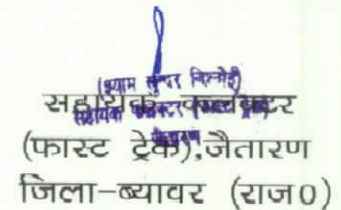 (श्याम सुन्दर बिश्नोई)
सहायक कलक्टर
सहायक कलक्टर
(फास्ट ट्रेक),जैतारण
जैतारण
जिला-ब्यावर (राज0)